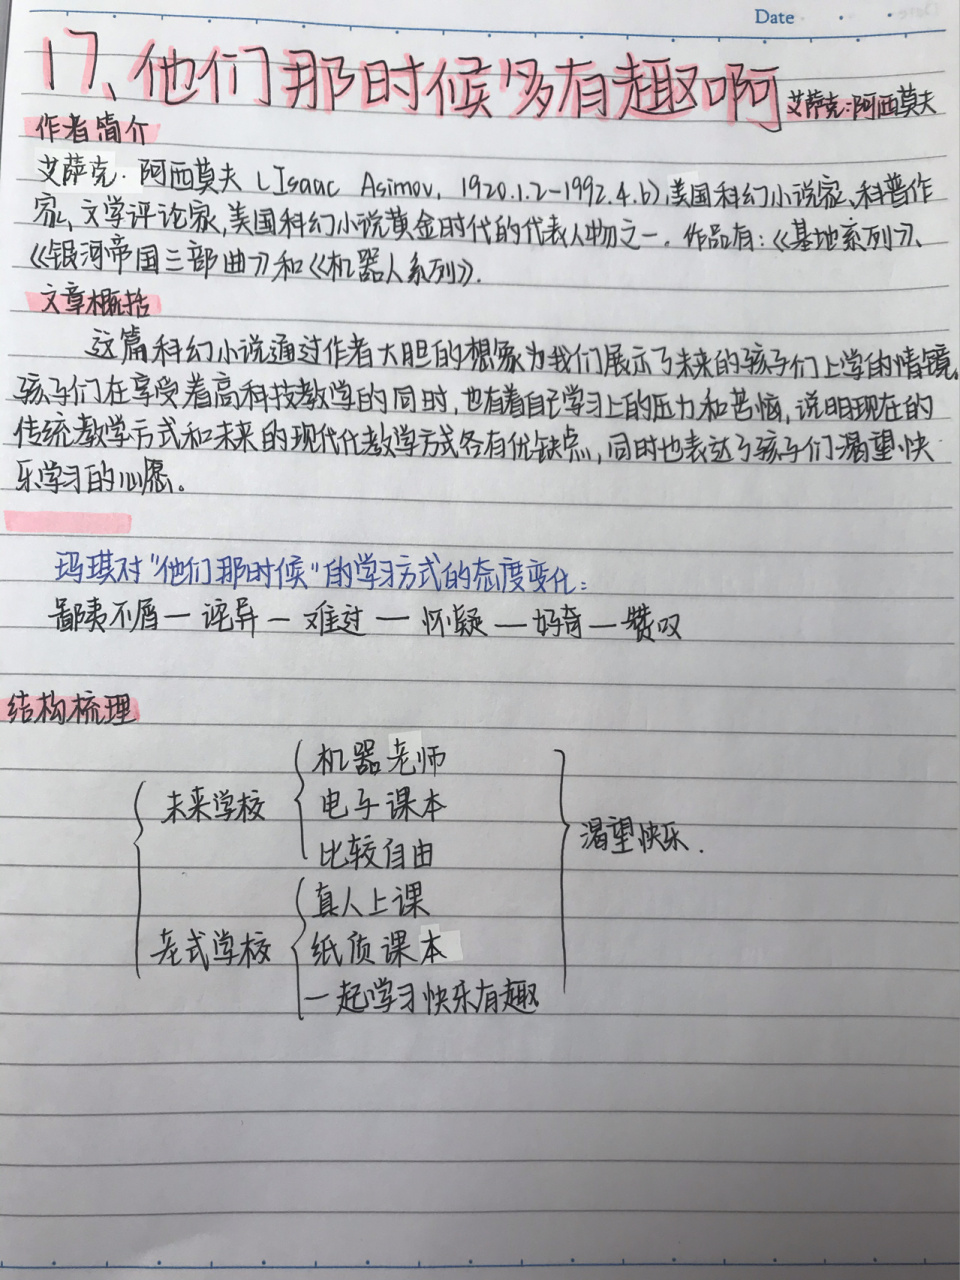 Date
17、他们那时候多有趣啊 艾萨克:阿西莫夫
作者简介
艾萨克·阿西莫夫(Isaac Asimov, 1920.1.2-1992.4.6),美国科幻小说家、科普作
家、文学评论家,美国科幻小说黄金时代的代表人物之一。作品有:《基地系列》、
《银河帝国三部曲》和《机器人系列》.
文章概括
这篇科幻小说通过作者大胆的想象为我们展示了未来的孩子们上学的情镜。
孩子们在享受着高科技教学的同时,也有着自己学习上的压力和苦恼,说明现在的
传统教学方式和未来的现代化教学方式各有优缺点,同时也表达了孩子们渴望快
乐学习的心愿。
玛琪对“他们那时候”的学习方式的态度变化:
鄙夷不屑—诧异—难过—怀疑—好奇—赞叹
结构梳理
机器老师
未来学校 电子课本
比较自由
渴望快乐.
真人上课
老式学校 纸质课本
一起学习快乐有趣